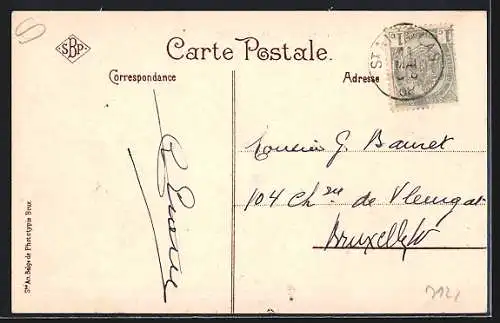 SBP
Carte Postale.
Correspondance
Adresse
1c 1c
ST
08
Monsieur G. Bauret
104 Ch ée de Vleurgat
Bruxelles
Sté An. Belge de Phototypie Brux.